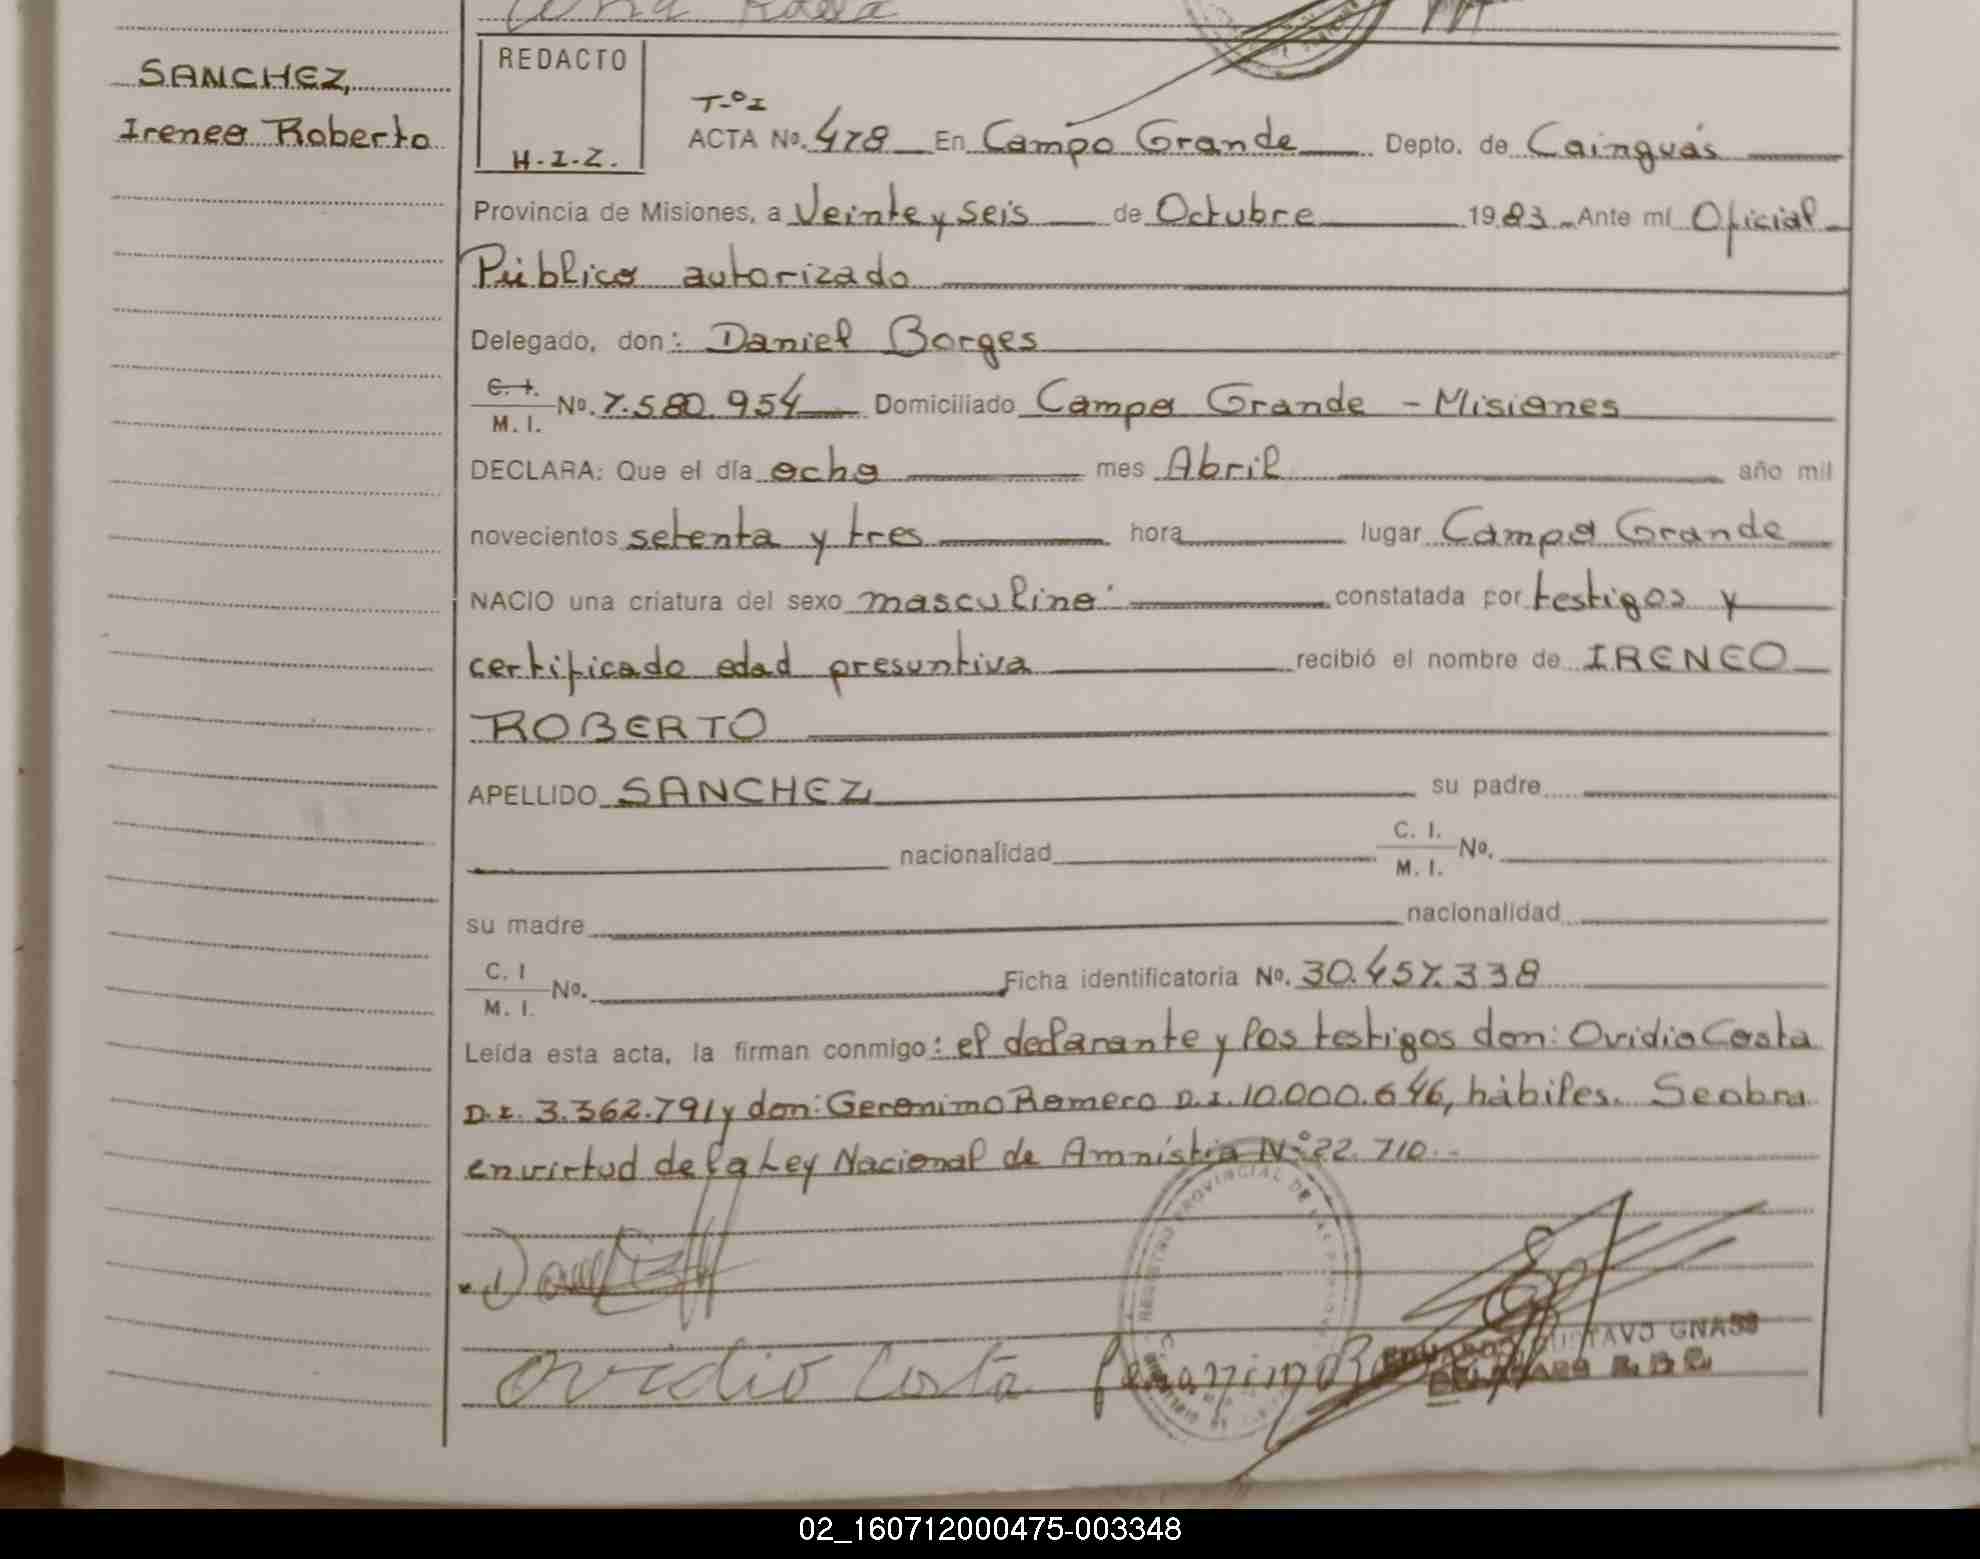 SANCHEZ,
Ireneo Roberto
REDACTO
H.I.Z.
T-º I
ACTA Nº. 478 En Campo Grande Depto. de Cainguás
Provincia de Misiones, a Veinte y seis de Octubre 1983 Ante mí Oficial
Público autorizado
Delegado, don: Daniel Borges
C. I.
M. I. Nº. 7.580.954 Domiciliado Campo Grande - Misiones
DECLARA: Que el día ocho mes Abril año mil
novecientos setenta y tres hora lugar Campo Grande
NACIO una criatura del sexo masculino constatada por testigos y
certificado edad presuntiva recibió el nombre de IRENEO
ROBERTO
APELLIDO SANCHEZ su padre
nacionalidad C. I. M. I. Nº.
su madre nacionalidad
C. I M. I. Nº. Ficha identificatoria Nº. 30.457.338
Leída esta acta, la firman conmigo: el declarante y los testigos don: Ovidio Costa
D.I. 3.362.791 y don: Geronimo Romero D.I. 10.000.646, hábiles. Se obra
en virtud de la Ley Nacional de Amnistia Nº 22.710.-
REGISTRO PROVINCIAL DE LAS PERSONAS
GUSTAVO GNASS
Ovidio Costa
02_160712000475-003348